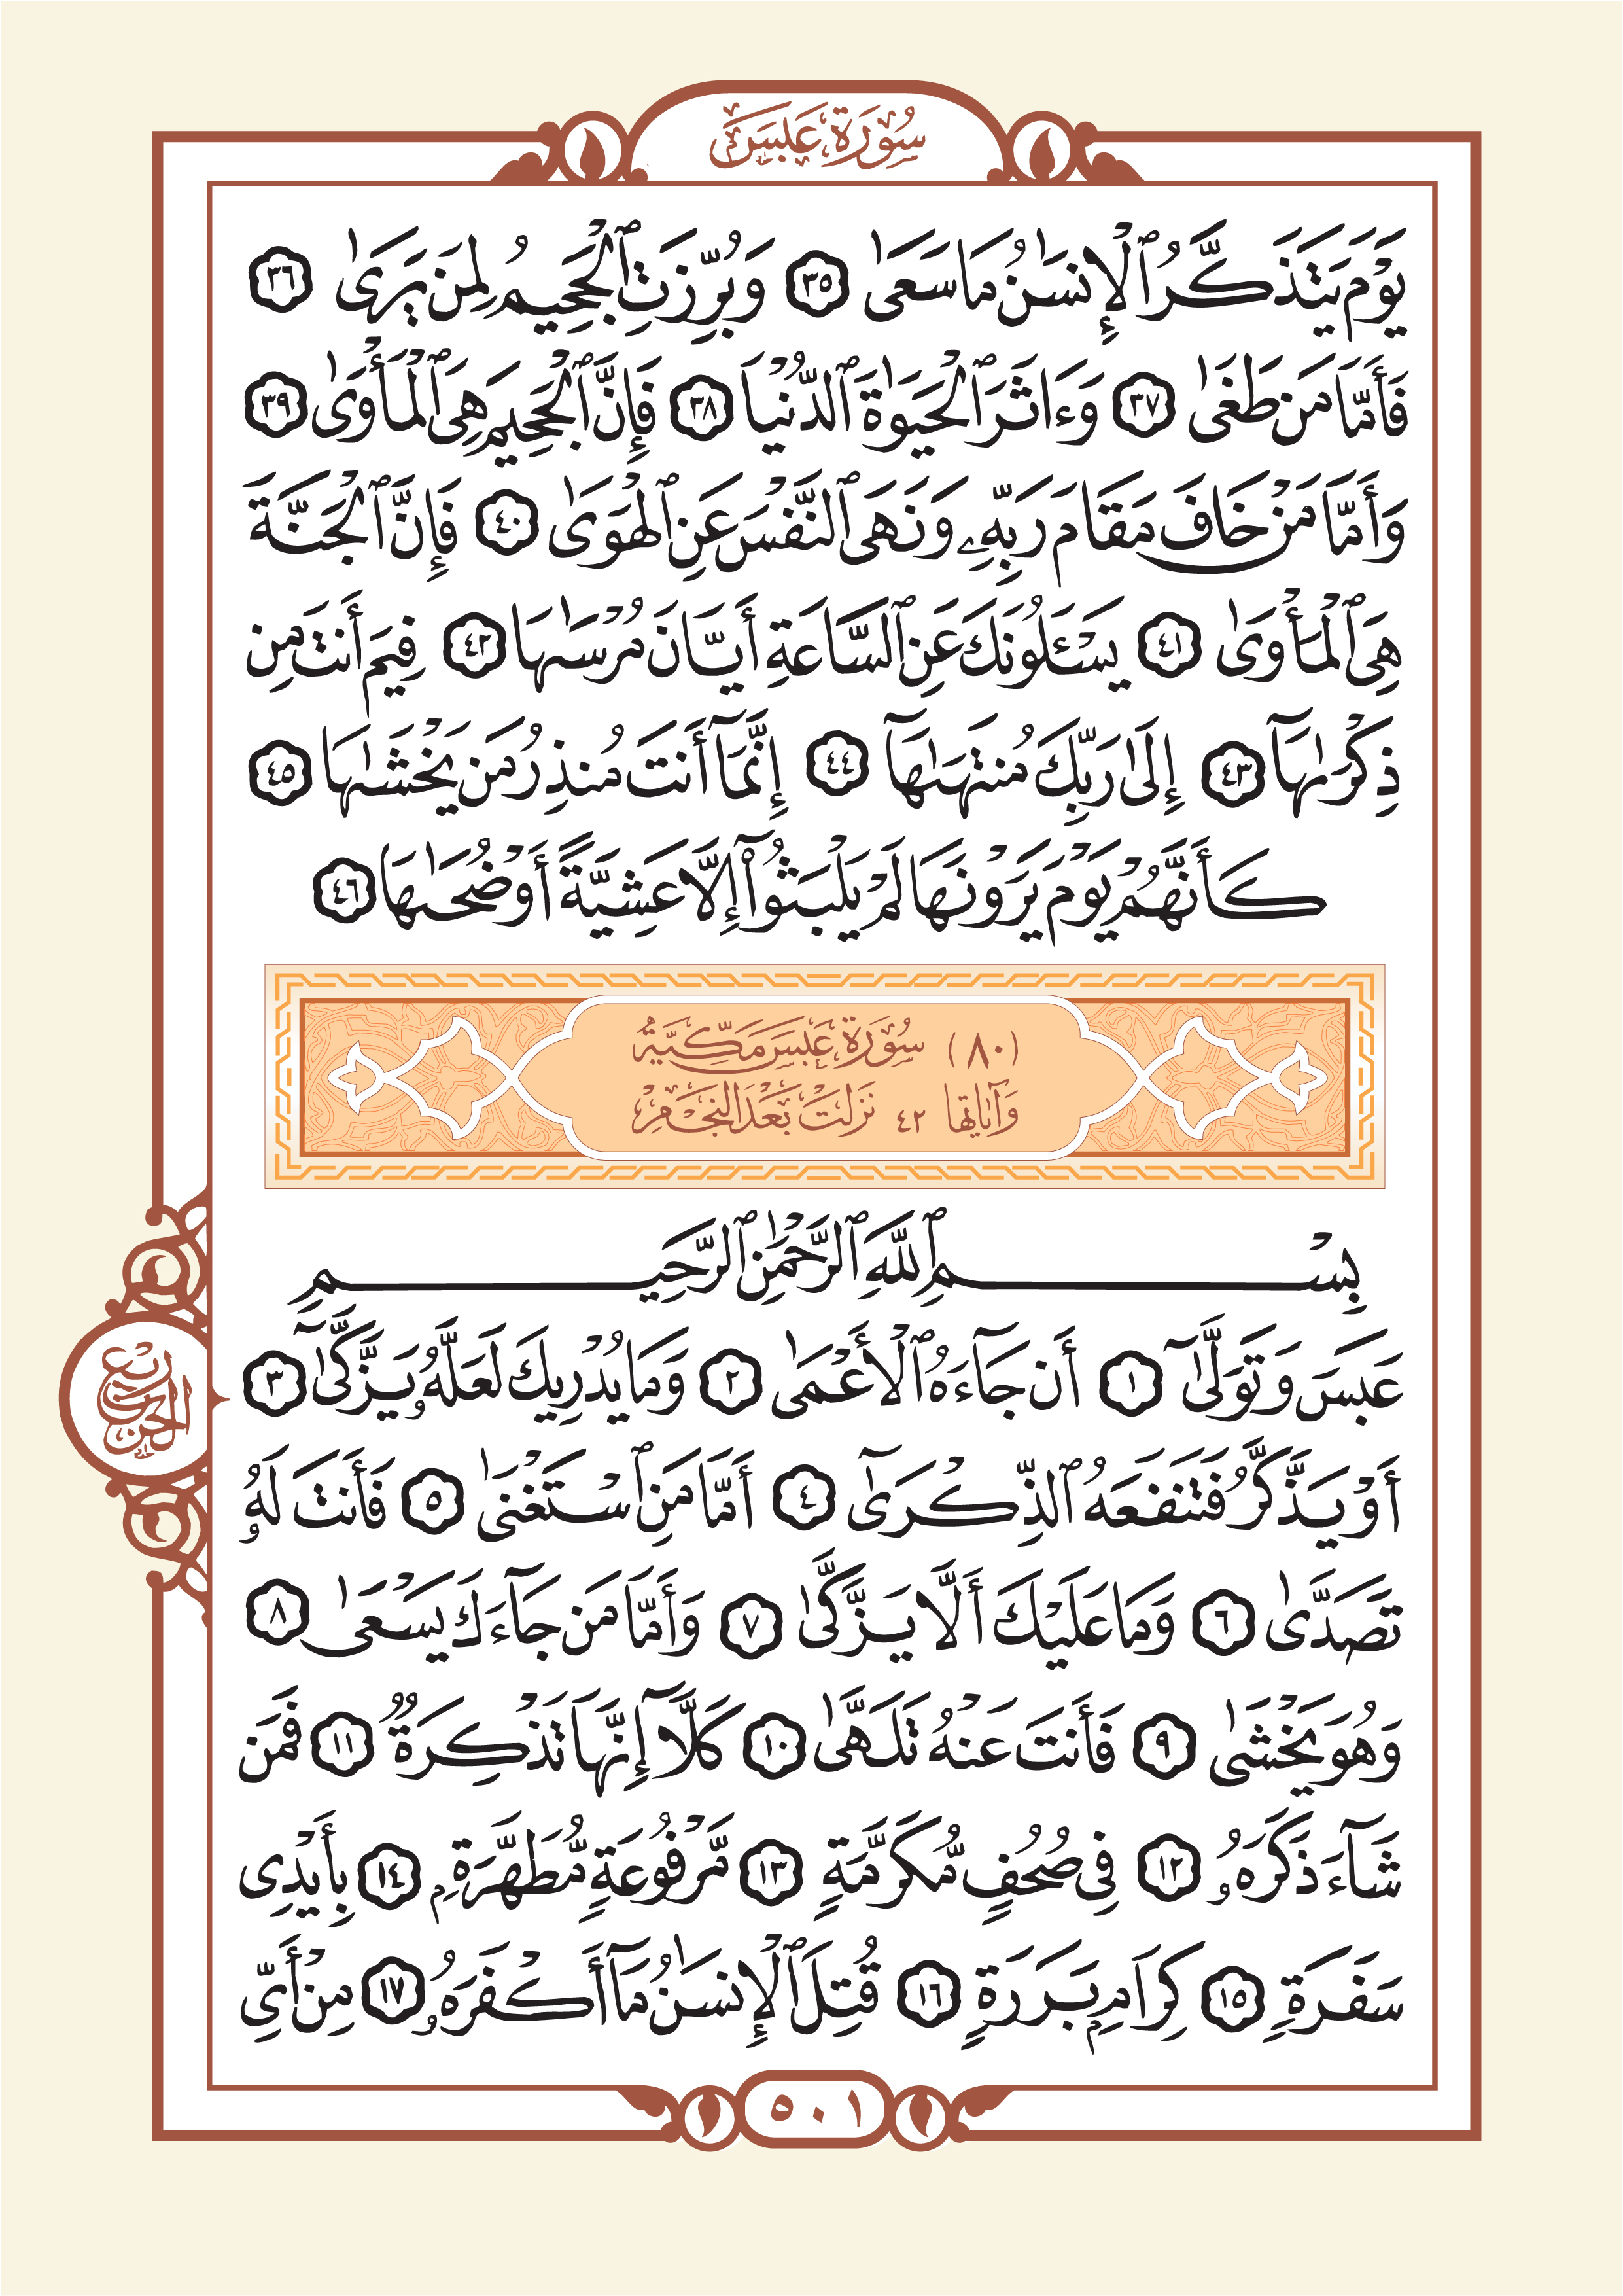 سُورَةُ عَبَسَ
يَوْمَ يَتَذَكَّرُ ٱلْإِنسَٰنُ مَا سَعَىٰ ٣٥ وَبُرِّزَتِ ٱلْجَحِيمُ لِمَن يَرَىٰ ٣٦
فَأَمَّا مَن طَغَىٰ ٣٧ وَءَاثَرَ ٱلْحَيَوٰةَ ٱلدُّنْيَا ٣٨ فَإِنَّ ٱلْجَحِيمَ هِىَ ٱلْمَأْوَىٰ ٣٩
وَأَمَّا مَنْ خَافَ مَقَامَ رَبِّهِۦ وَنَهَى ٱلنَّفْسَ عَنِ ٱلْهَوَىٰ ٤٠ فَإِنَّ ٱلْجَنَّةَ
هِىَ ٱلْمَأْوَىٰ ٤١ يَسْـَٔلُونَكَ عَنِ ٱلسَّاعَةِ أَيَّانَ مُرْسَىٰهَا ٤٢ فِيمَ أَنتَ مِن
ذِكْرَىٰهَآ ٤٣ إِلَىٰ رَبِّكَ مُنتَهَىٰهَآ ٤٤ إِنَّمَآ أَنتَ مُنذِرُ مَن يَخْشَىٰهَا ٤٥
كَأَنَّهُمْ يَوْمَ يَرَوْنَهَا لَمْ يَلْبَثُوٓا۟ إِلَّا عَشِيَّةً أَوْ ضُحَىٰهَا ٤٦
(٨٠) سُورَةُ عَبَسَ مَكِّيَّةٌ
وَآيَاتُهَا ٤٢ نَزَلَتْ بَعْدَ النَّجْمِ
بِسْمِ ٱللَّهِ ٱلرَّحْمَٰنِ ٱلرَّحِيمِ
عَبَسَ وَتَوَلَّىٰٓ ١ أَن جَآءَهُ ٱلْأَعْمَىٰ ٢ وَمَا يُدْرِيكَ لَعَلَّهُۥ يَزَّكَّىٰٓ ٣
أَوْ يَذَّكَّرُ فَتَنفَعَهُ ٱلذِّكْرَىٰٓ ٤ أَمَّا مَنِ ٱسْتَغْنَىٰ ٥ فَأَنتَ لَهُۥ
تَصَدَّىٰ ٦ وَمَا عَلَيْكَ أَلَّا يَزَّكَّىٰ ٧ وَأَمَّا مَن جَآءَكَ يَسْعَىٰ ٨
وَهُوَ يَخْشَىٰ ٩ فَأَنتَ عَنْهُ تَلَهَّىٰ ١٠ كَلَّآ إِنَّهَا تَذْكِرَةٌ ١١ فَمَن
شَآءَ ذَكَرَهُۥ ١٢ فِى صُحُفٍ مُّكَرَّمَةٍ ١٣ مَّرْفُوعَةٍ مُّطَهَّرَةِۭ ١٤ بِأَيْدِى
سَفَرَةٍ ١٥ كِرَامِۭ بَرَرَةٍ ١٦ قُتِلَ ٱلْإِنسَٰنُ مَآ أَكْفَرَهُۥ ١٧ مِنْ أَىِّ
ربع
الحزب
٥٠١